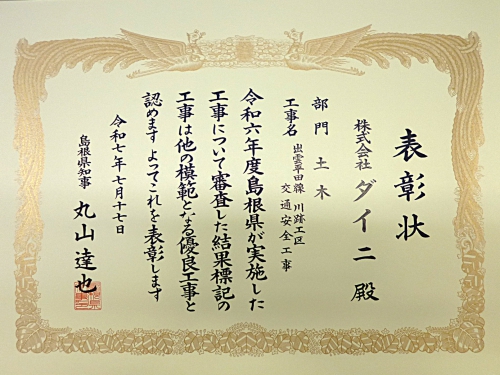 表彰状
株式会社 ダイニ 殿
部門 土木
工事名 出雲平田線 川跡工区
交通安全工事
令和六年度島根県が実施した
工事について審査した結果標記の
工事は他の模範となる優良工事と
認めます よってこれを表彰します
令和七年七月十七日
島根県知事 丸山達也